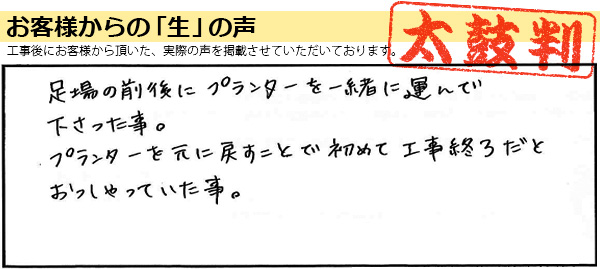 お客様からの「生」の声
太鼓判
工事後にお客様から頂いた、実際の声を掲載させていただいております。
足場の前後にプランターを一緒に運んで
下さった事。
プランターを元に戻すことで初めて工事終ろだと
おっしゃっていた事。